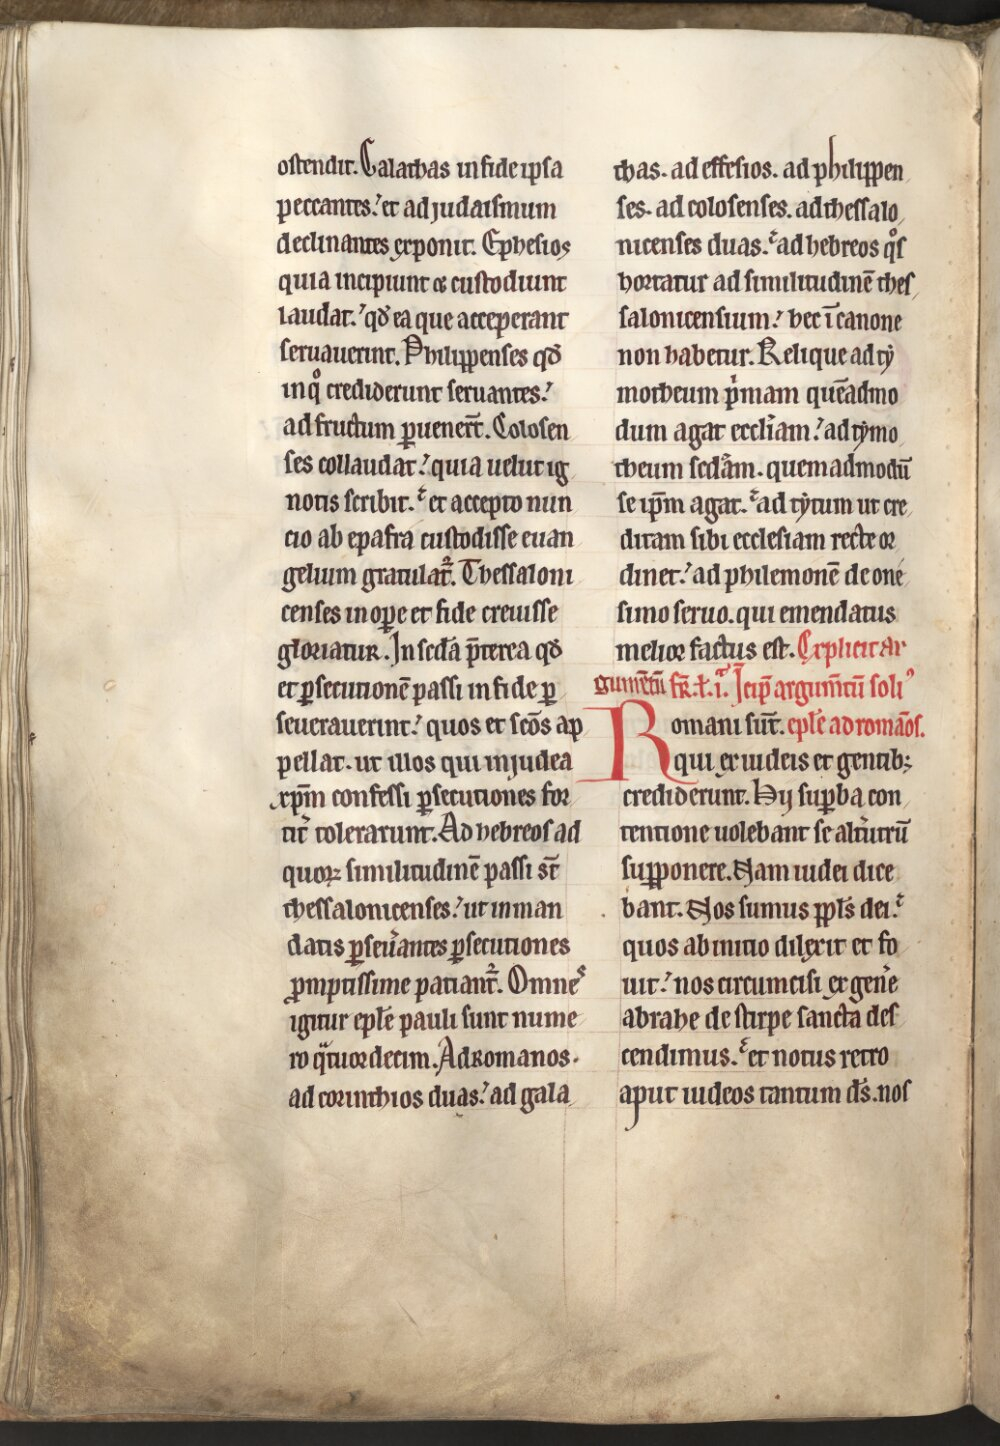 ostendit. Galathas in fide ipsa
peccantes. et ad judaismum
declinantes exponit. Ephesios
quia incipiunt & custodiunt
laudat. qđ ea que acceperant
seruauerint. Philippenses qđ
in qͦ crediderunt seruantes.
ad fructum ꝑuenerт̄. Colosen
ses collaudat. quia uelut ig
notis scribit. et accepto nun
cio ab epafra custodisse euan
gelium gratulat᷑. Thessaloni
censes in oꝑe et fide creuisse
gloriatur. In scđa p̄terea qđ
et ꝑsecutionē passi in fide ꝑ
seuerauerint. quos et scōs ap
pellat. ut illos qui in judea
xp̄m confessi ꝑsecutiones for
tit͛ tolerarunt. Ad hebreos ad
quoꝝ similitudinē passi st̄
thessalonicenses. ut in man
datis ꝑseu͛antes ꝑsecutiones
ꝓmptissime patiant᷑. Omnes
igitur epl̄e pauli sunt nume
ro qͣtuordecim. Ad romanos.
ad corinthios duas. ad gala
thas. ad effesios. ad philippen
ses. ad colosenses. ad thessalo
nicenses duas. ad hebreos qͦs
hortatur ad similitudinē thes
salonicensium. hec ī canone
non habetur. Relique ad ty
motheum pⁱmam quēadmo
dum agat eccl̄iam. ad tymo
theum scđam. quemadmodū
se ip̄m agat. ad tytum ut cre
ditam sibi ecclesiam recte or
dinet. ad philemonē de one
simo seruo. qui emendatus
melior factus est. Explicit ar
gumētū Incip̄ argum̄tū soli⁹
Romani sūt. epl̄e ad romāos.
qui ex iudeis et gentib;
crediderunt. Hij suꝑba con
tentione uolebant se alt͛utrū
supponere. Nam iudei dice
bant. Nos sumus ppl̄s dei.
quos ab initio dilexit et fo
uit. nos circumcisi ex gen͛e
abrahe de stirpe sancta des
cendimus. et notus retro
aput iudeos tantum ds̄. nos